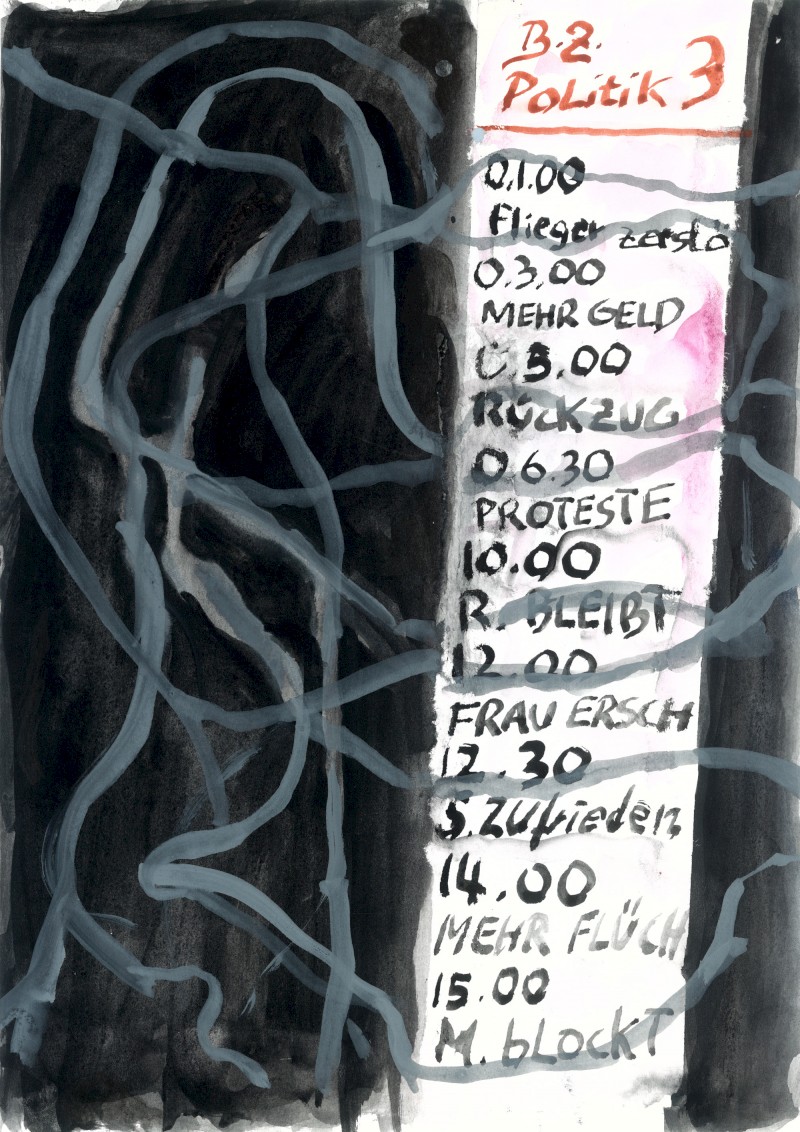 B.Z.
Politik 3
0.1.00
Flieger zerstö
0.3.00
MEHR GELD
0.5.00
RÜCKZUG
0.6.30
PROTESTE
10.00
R. BLEIBT
12.00
FRAU ERSCH
12.30
S. Zufrieden
14.00
MEHR FLÜCH
15.00
M. bLOCKT